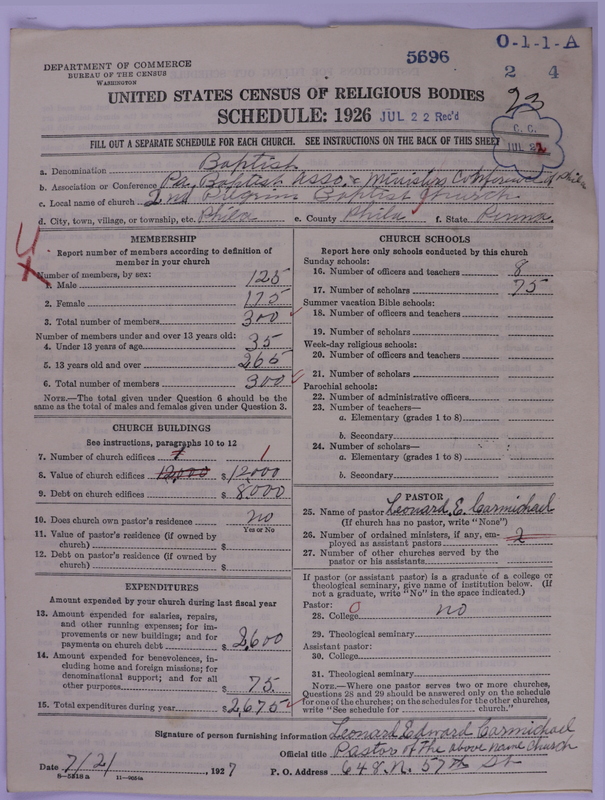 5696
O-1-1-A
2 4
DEPARTMENT OF COMMERCE
BUREAU OF THE CENSUS
WASHINGTON
UNITED STATES CENSUS OF RELIGIOUS BODIES
SCHEDULE: 1926 JUL 22 Rec'd
23
C. C.
JUL 22
FILL OUT A SEPARATE SCHEDULE FOR EACH CHURCH. SEE INSTRUCTIONS ON THE BACK OF THIS SHEET
a. Denomination Baptist
b. Association or Conference Pa. Baptist Asso. & Ministers Conference of Phila
c. Local name of church 2nd Pilgrim Baptist Church
d. City, town, village, or township, etc. Phila e. County Phila f. State Penna
MEMBERSHIP
Report number of members according to definition of
member in your church
Number of members, by sex:
1. Male 125
2. Female 175
3. Total number of members 300
Number of members under and over 13 years old:
4. Under 13 years of age 35
5. 13 years old and over 265
6. Total number of members 300
NOTE.—The total given under Question 6 should be the
same as the total of males and females given under Question 3.
CHURCH BUILDINGS
See instructions, paragraphs 10 to 12
7. Number of church edifices 1
8. Value of church edifices 12,000 $12000
9. Debt on church edifices $8,000
10. Does church own pastor's residence no
Yes or No
11. Value of pastor's residence (if owned by
church) $
12. Debt on pastor's residence (if owned by
church) $
EXPENDITURES
Amount expended by your church during last fiscal year
13. Amount expended for salaries, repairs,
and other running expenses; for im-
provements or new buildings; and for
payments on church debt $2,600
14. Amount expended for benevolences, in-
cluding home and foreign missions; for
denominational support; and for all
other purposes $75.
15. Total expenditures during year $2,675
CHURCH SCHOOLS
Report here only schools conducted by this church
Sunday schools:
16. Number of officers and teachers 8
17. Number of scholars 75
Summer vacation Bible schools:
18. Number of officers and teachers
19. Number of scholars
Week-day religious schools:
20. Number of officers and teachers
21. Number of scholars
Parochial schools:
22. Number of administrative officers
23. Number of teachers—
a. Elementary (grades 1 to 8)
b. Secondary
24. Number of scholars—
a. Elementary (grades 1 to 8)
b. Secondary
PASTOR
25. Name of pastor Leonard E. Carmichael
(If church has no pastor, write "None")
26. Number of ordained ministers, if any, em-
ployed as assistant pastors 2
27. Number of other churches served by the
pastor or his assistants
If pastor (or assistant pastor) is a graduate of a college or
theological seminary, give name of institution below. (If
not a graduate, write "No" in the space indicated.)
Pastor:
28. College 0 no
29. Theological seminary
Assistant pastor:
30. College
31. Theological seminary
NOTE.—Where one pastor serves two or more churches,
Questions 28 and 29 should be answered only on the schedule
for one of the churches; on the schedules for the other churches,
write "See schedule for church."
Signature of person furnishing information Leonard Edward Carmichael
Official title Pastor of the above name Church
Date 7/21, 1927 P. O. Address 648 N. 57th St
8-5518a 11-9054a